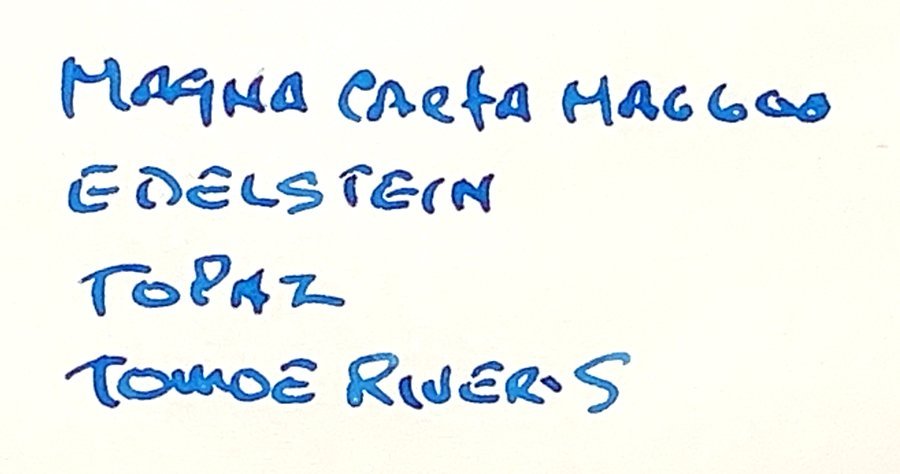 MAGNA CARTA MAG600
EDELSTEIN
TOPAZ
TOMOE RIVER-S